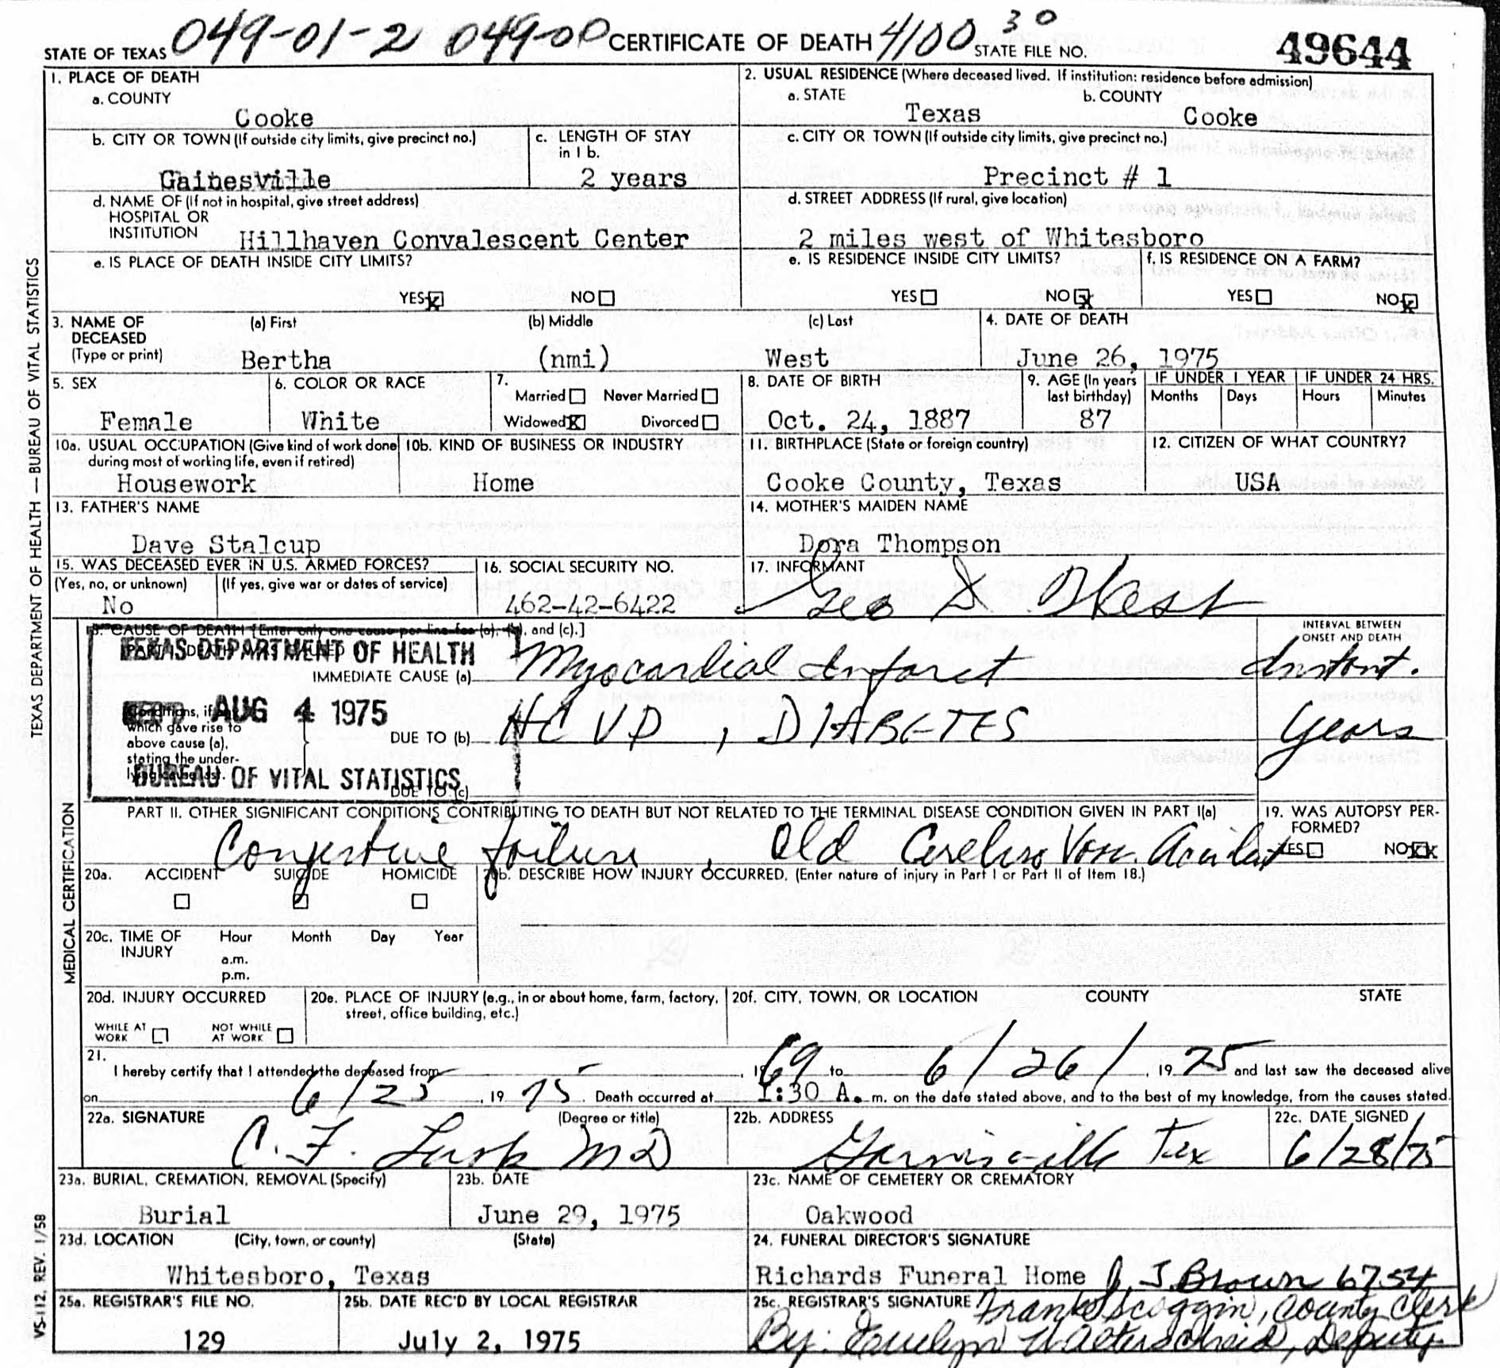 STATE OF TEXAS 049-01-2 049-00 CERTIFICATE OF DEATH 4100 30 STATE FILE NO. 49644
1. PLACE OF DEATH
a. COUNTY
Cooke
2. USUAL RESIDENCE (Where deceased lived. If institution: residence before admission)
a. STATE b. COUNTY
Texas Cooke
b. CITY OR TOWN (If outside city limits, give precinct no.)
Gainesville
c. LENGTH OF STAY
in 1 b.
2 years
c. CITY OR TOWN (If outside city limits, give precinct no.)
Precinct # 1
d. NAME OF (If not in hospital, give street address)
HOSPITAL OR
INSTITUTION Hillhaven Convalescent Center
d. STREET ADDRESS (If rural, give location)
2 miles west of Whitesboro
e. IS PLACE OF DEATH INSIDE CITY LIMITS?
YES X NO
e. IS RESIDENCE INSIDE CITY LIMITS?
YES NO X
f. IS RESIDENCE ON A FARM?
YES NO X
3. NAME OF (a) First (b) Middle (c) Last
DECEASED
(Type or print) Bertha (nmi) West
4. DATE OF DEATH
June 26, 1975
5. SEX
Female
6. COLOR OR RACE
White
7.
Married Never Married
Widowed X Divorced
8. DATE OF BIRTH
Oct. 24, 1887
9. AGE (In years
last birthday)
87
IF UNDER 1 YEAR IF UNDER 24 HRS.
Months Days Hours Minutes
10a. USUAL OCCUPATION (Give kind of work done
during most of working life, even if retired)
Housework
10b. KIND OF BUSINESS OR INDUSTRY
Home
11. BIRTHPLACE (State or foreign country)
Cooke County, Texas
12. CITIZEN OF WHAT COUNTRY?
USA
13. FATHER'S NAME
Dave Stalcup
14. MOTHER'S MAIDEN NAME
Dora Thompson
15. WAS DECEASED EVER IN U.S. ARMED FORCES?
(Yes, no, or unknown) (If yes, give war or dates of service)
No
16. SOCIAL SECURITY NO.
462-42-6422
17. INFORMANT
Geo D. West
18. CAUSE OF DEATH [Enter only one cause per line for (a), (b), and (c).]
TEXAS DEPARTMENT OF HEALTH
REC'D AUG 4 1975
BUREAU OF VITAL STATISTICS
INTERVAL BETWEEN
ONSET AND DEATH
IMMEDIATE CAUSE (a) Myocardial Infarct Instant.
Conditions, if any
which gave rise to
above cause (a),
stating the under-
lying cause last.
DUE TO (b) HCVD, DIABETES Years
DUE TO (c)
PART II. OTHER SIGNIFICANT CONDITIONS CONTRIBUTING TO DEATH BUT NOT RELATED TO THE TERMINAL DISEASE CONDITION GIVEN IN PART I(a)
Congestive failure, Old Cerebro Vasc. Accident
19. WAS AUTOPSY PER-
FORMED?
YES NO XX
20a. ACCIDENT SUICIDE HOMICIDE
20b. DESCRIBE HOW INJURY OCCURRED. (Enter nature of injury in Part I or Part II of Item 18.)
20c. TIME OF Hour Month Day Year
INJURY a.m.
p.m.
20d. INJURY OCCURRED
WHILE AT WORK NOT WHILE AT WORK
20e. PLACE OF INJURY (e.g., in or about home, farm, factory,
street, office building, etc.)
20f. CITY, TOWN, OR LOCATION COUNTY STATE
21.
I hereby certify that I attended the deceased from , 1969 to 6/26/, 1975 and last saw the deceased alive
on 6/25, 1975. Death occurred at 1:30 A. m. on the date stated above, and to the best of my knowledge, from the causes stated.
22a. SIGNATURE (Degree or title)
C. F. Lusk MD
22b. ADDRESS
Gainesville Tex
22c. DATE SIGNED
6/28/75
23a. BURIAL, CREMATION, REMOVAL (Specify)
Burial
23b. DATE
June 29, 1975
23c. NAME OF CEMETERY OR CREMATORY
Oakwood
23d. LOCATION (City, town, or county) (State)
Whitesboro, Texas
24. FUNERAL DIRECTOR'S SIGNATURE
Richards Funeral Home J. J. Brown 6754
25a. REGISTRAR'S FILE NO.
129
25b. DATE REC'D BY LOCAL REGISTRAR
July 2, 1975
25c. REGISTRAR'S SIGNATURE Frank Scoggin, County Clerk
By: Evelyn Walterscheid, Deputy
TEXAS DEPARTMENT OF HEALTH — BUREAU OF VITAL STATISTICS
MEDICAL CERTIFICATION
VS-112, REV. 1/58